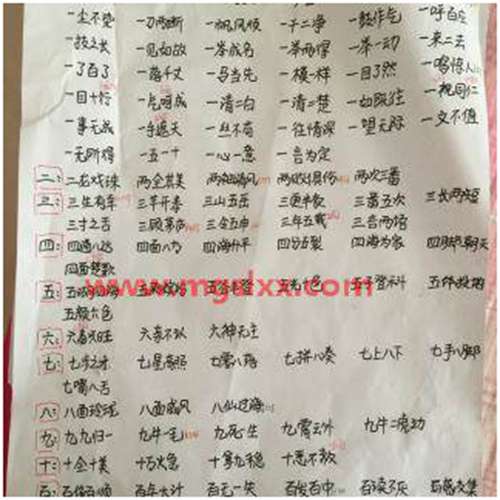 一尘不染 一刀两断 一帆风顺 一干二净 一鼓作气 一呼百应
一技之长 一见如故 一举成名 一举两得 一举一动 一来二去
一了百了 一落千丈 一马当先 一模一样 一目了然 一鸣惊人
一目十行 一气呵成 一清二白 一清二楚 一如既往 一视同仁
一事无成 一手遮天 一丝不苟 一往情深 一望无际 一文不值
一无所得 一五一十 一心一意 一言为定
二：二龙戏珠 两全其美 两袖清风 两败俱伤 两次三番
三：三生有幸 三羊开泰 三山五岳 三更半夜 三番五次 三长两短
三寸之舌 三顾茅庐 三令五申 三年五载
四：四通八达 四面八方 四海升平 四分五裂 四海为家 四脚朝天
四面楚歌
五： 五光十色 五子登科 五体投地
五颜六色
www.mgdxx.com
六： 六亲不认 六神无主
七： 七星高照 七零八落 七拼八凑 七上八下 七手八脚
七嘴八舌
八：八面玲珑 八面威风 八仙过海
九：九九归一 九牛一毛 九死一生 九霄云外 九牛二虎
十：十全十美 十万火急 十拿九稳 十恶不赦
百：百依百顺 百年大计 百发百中